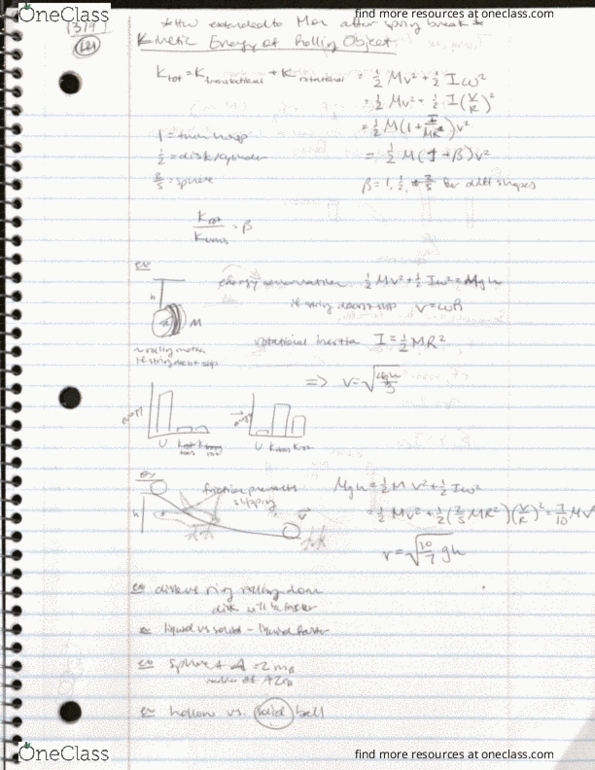 OneClass
find more resources at oneclass.com
3/9
L21
*HW extended to Mon after spring break*
Kinetic Energy of Rolling Object
Ktot = Ktranslational + Krotational = ½ Mv² + ½ Iω²
= ½ Mv² + ½ I(v/R)²
= ½ M(1 + I/MR²)v²
1 = thin hoop
½ = disk/cylinder
= ½ M(1 + β)v²
⅖ = sphere
β = 1, ½, ⅖ for diff shapes
Krot/Ktrans = β
ex
energy conservation ½ Mv² + ½ Iω² = Mgh
h
if string doesn't slip v = ωR
M
rotational inertia I = ½ MR²
~rolling motion
if string doesn't slip
=> v = √(4gh/3)
U Ktrans Krot
U Ktrans Krot
ex
friction prevents slipping
Mgh = ½ M v² + ½ Iω²
h
v
= ½ Mv² + ½(⅖ MR²)(v/R)² = 7/10 Mv²
v = √(10/7 gh)
ex disk vs ring rolling down
disk will be faster
ex liquid vs solid - liquid faster
ex sphere A = 2 mB
radius of A 2rB
ex hollow vs. solid ball
OneClass
find more resources at oneclass.com